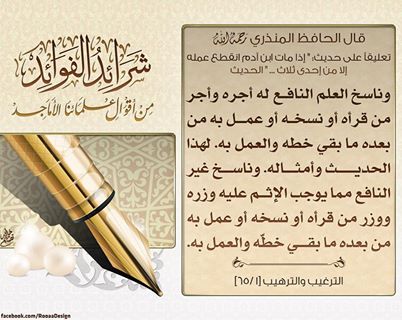 قال الحافظ المنذري رحمه الله
تعليقاً على حديث: " إذا مات ابن آدم انقطع عمله
إلا من إحدى ثلاث ... " الحديث
وناسخ العلم النافع له أجره وأجر
من قرأه أو نسخه أو عمل به من
بعده ما بقي خطه والعمل به. لهذا
الحديث وأمثاله. وناسخ غير
النافع مما يوجب الإثم عليه وزره
ووزر من قرأه أو نسخه أو عمل به
من بعده ما بقي خطّه والعمل به.
الترغيب والترهيب [٦٥/١]
شرائد الفوائد
من أقوال علمائنا الأماجد
facebook.com/RooaaDesign